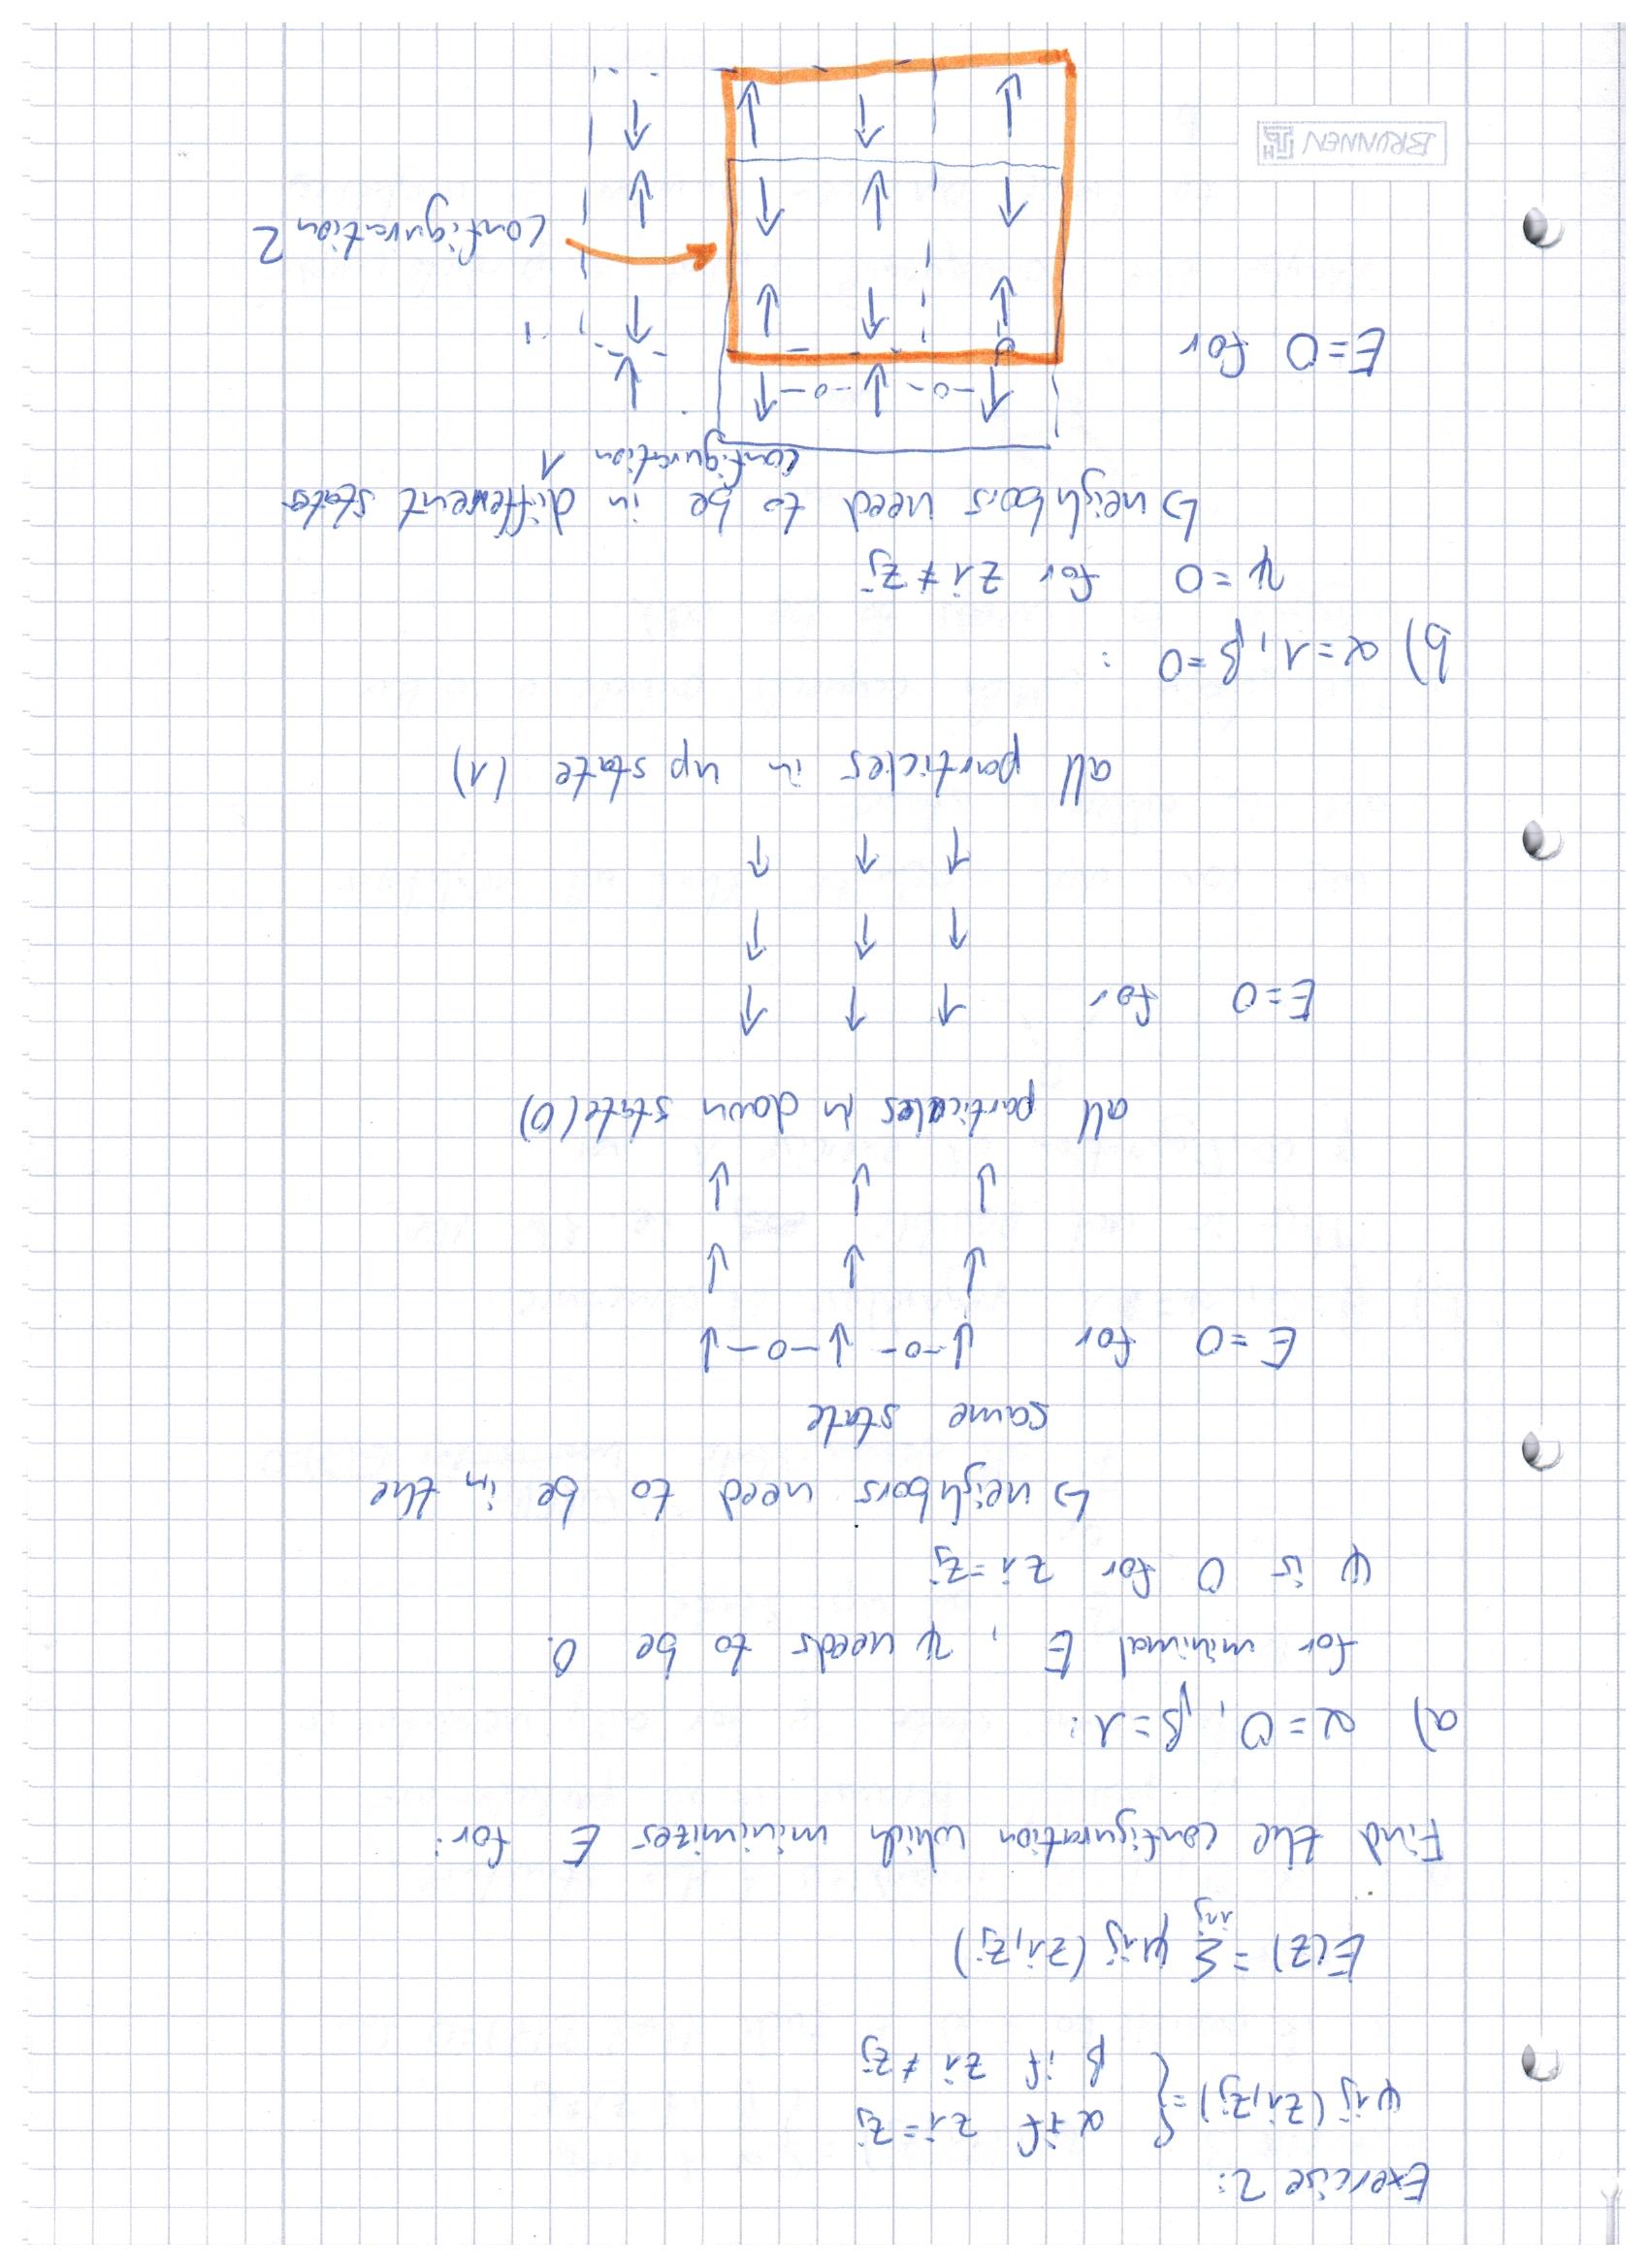 Exercise 2:
ψij (zi,zj) = { α if zi = zj
β if zi ≠ zj
E(z) = Σ ψij (zi,zj)
i,j
Find the configuration which minimizes E for:
a) α=0, β=1:
for minimal E, ψ needs to be 0.
ψ is 0 for zi=zj
↳ neighbors need to be in the
same state
E=0 for ↓-0-↓-0-↓
↓ ↓ ↓
↓ ↓ ↓
all particles in down state (0)
E=0 for ↑ ↑ ↑
↑ ↑ ↑
↑ ↑ ↑
all particles in up state (1)
b) α=1, β=0 :
ψ=0 for zi≠zj
↳ neighbors need to be in different states
configuration 1
↑-0-↓-0-↑ ↓
E=0 for
0
↓ ↑ ↓ ↑
configuration 2
↑ ↓ ↑ ↓
BRUNNEN
↓ ↑ ↓ ↑